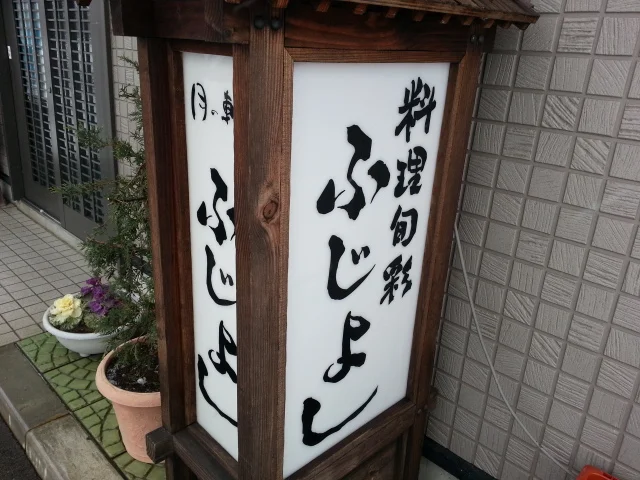 料理旬彩
ふじよし
月の
ふじよし